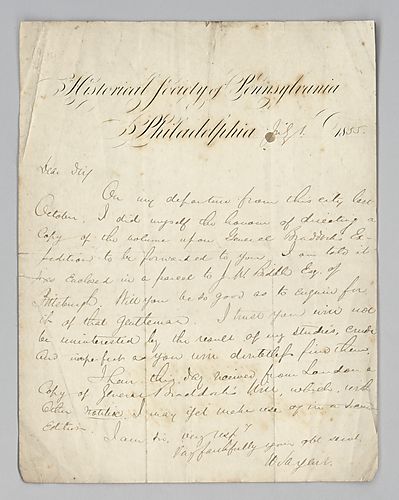 Historical Society of Pennsylvania
Philadelphia July 1st 1855.
Dear Sir,
On my departure from this city last
October, I did myself the honour of directing a
Copy of the volume upon General Braddock's Ex-
pedition to be forwarded to you. I am told it
was enclosed in a parcel to J. M. Biddle Esq. of
Pittsburgh. Will you be so good as to enquire for
it of that gentleman. I trust you will not
be uninterested by the result of my studies, crude
and imperfect as you will doubtless find them.
I have this day received from London a
Copy of General Braddock's Will, which, with
other notitia, I may yet make use of in a second
Edition. I am sir, very resp'y
Very faithfully your obt servt,
W. Sargent.